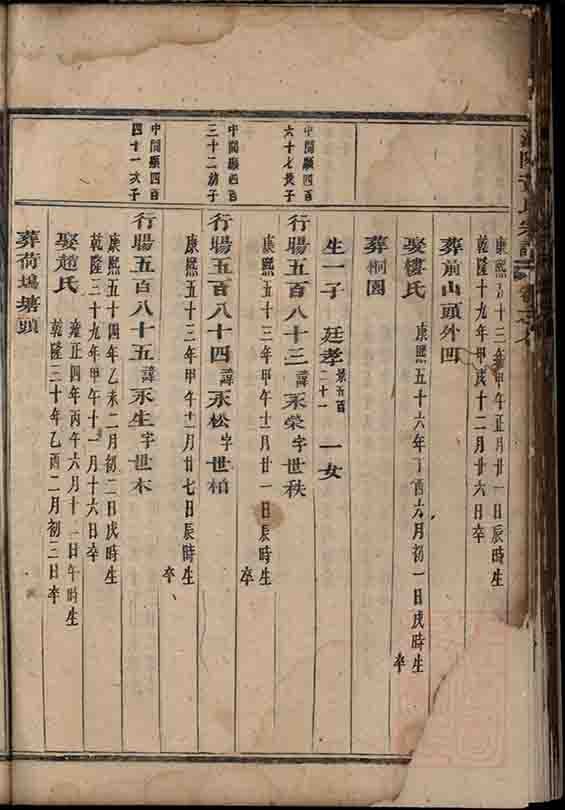 康熙五十三年甲午正月廿一日辰時生
乾隆十九年甲戌十二月廿六日卒
葬前山頭外凹
娶樓氏
康熙五十六年丁酉六月初一日戌時生
卒
葬桐園
生一子 廷孝 一女
中間廳四百
六十七長子
行賜五百八十三諱永榮字世秩
康熙五十三年甲午十二月廿一日辰時生
卒
中間廳四百
三十二幼子
行賜五百八十四諱永松字世柏
康熙五十三年甲午十一月廿七日辰時生
卒
中間廳四百
四十一次子
行賜五百八十五諱永生字世本
康熙五十四年乙未二月初二日戌時生
乾隆三十九年甲午十一月十六日卒
娶趙氏
雍正四年丙午六月十一日午時生
乾隆三十年乙酉二月初三日卒
葬荷塘頭